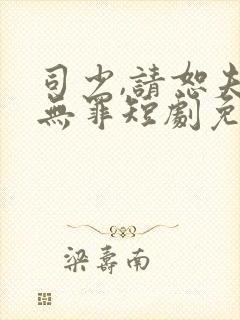 司少,請恕夫
無罪短劇免
梁壽南